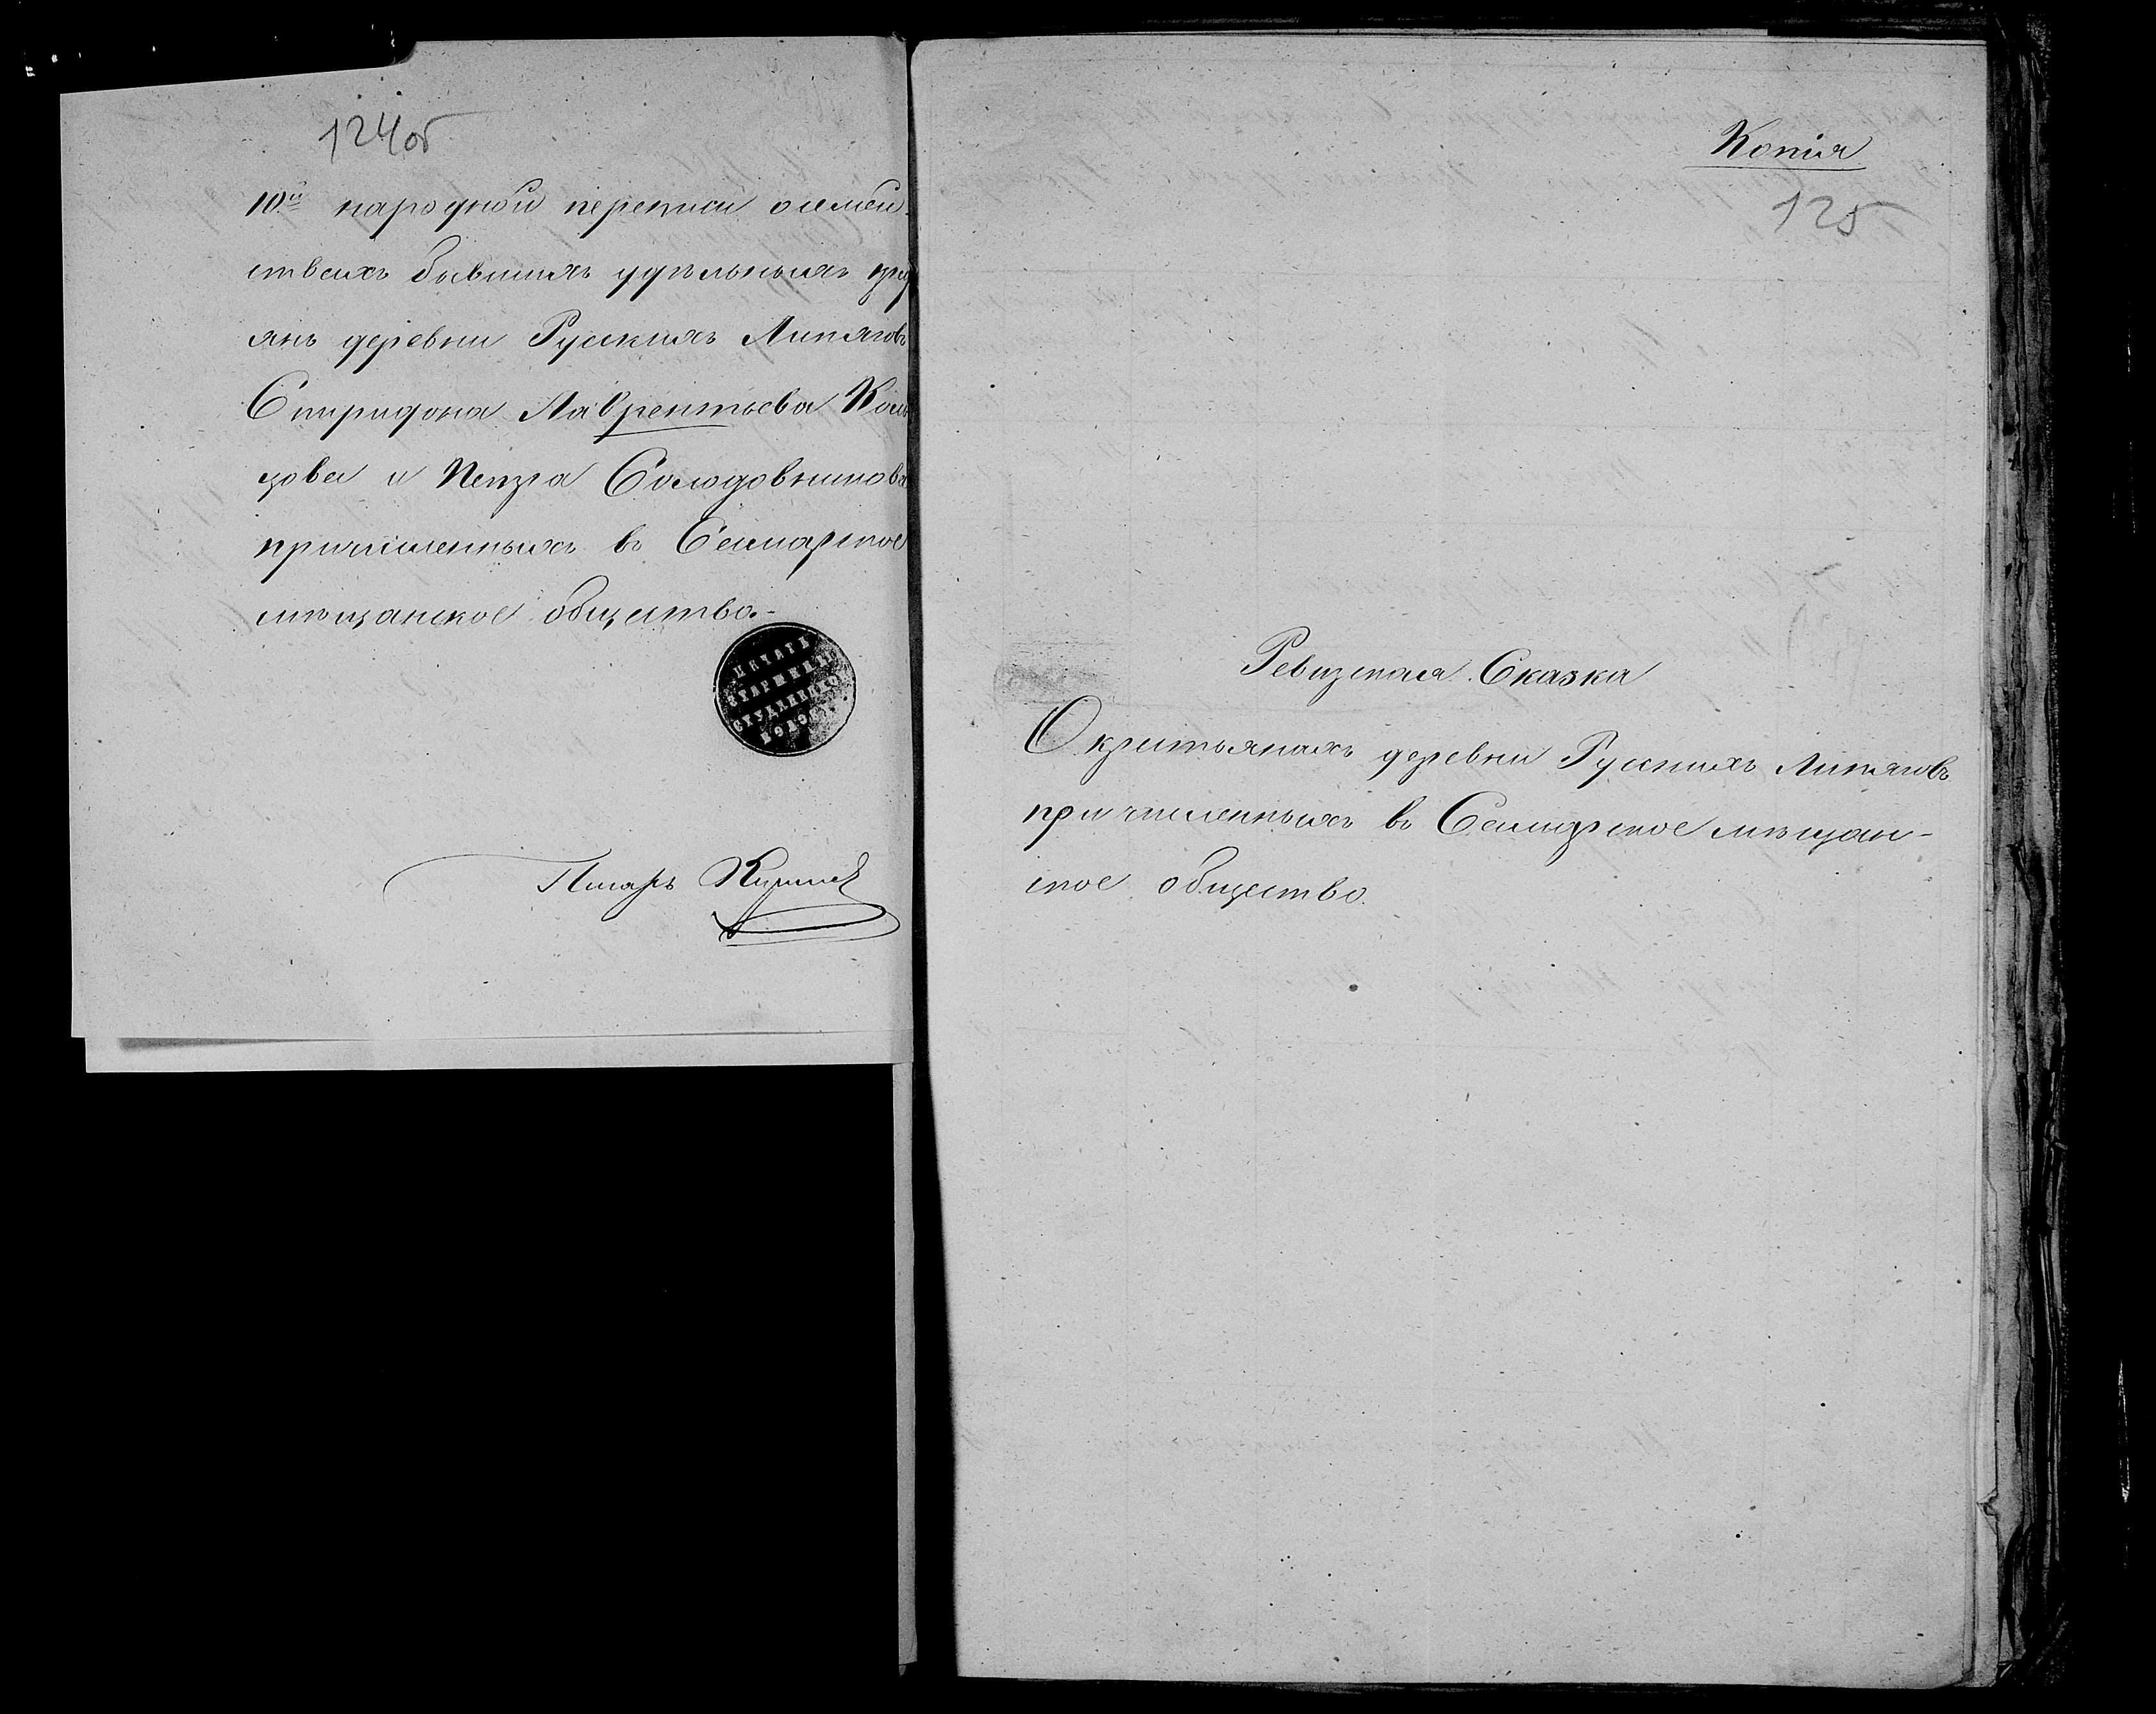 124об
10й народной переписи о семей-
ствахъ бывшихъ удѣльныхъ кре
янъ деревни Русскихъ Липяговъ
Спиридона Лаврентьева Коль
цова и Петра Солодовникова
причисленныхъ въ Самарское
мѣщанское общество.-
ПЕЧАТЬ
СТАРШИНЫ
Писарь
Копія
125
Ревизская Сказка
О крестьянахъ деревни Русскихъ Липяговъ
причисленныхъ въ Самарское мѣщан-
ское общество.